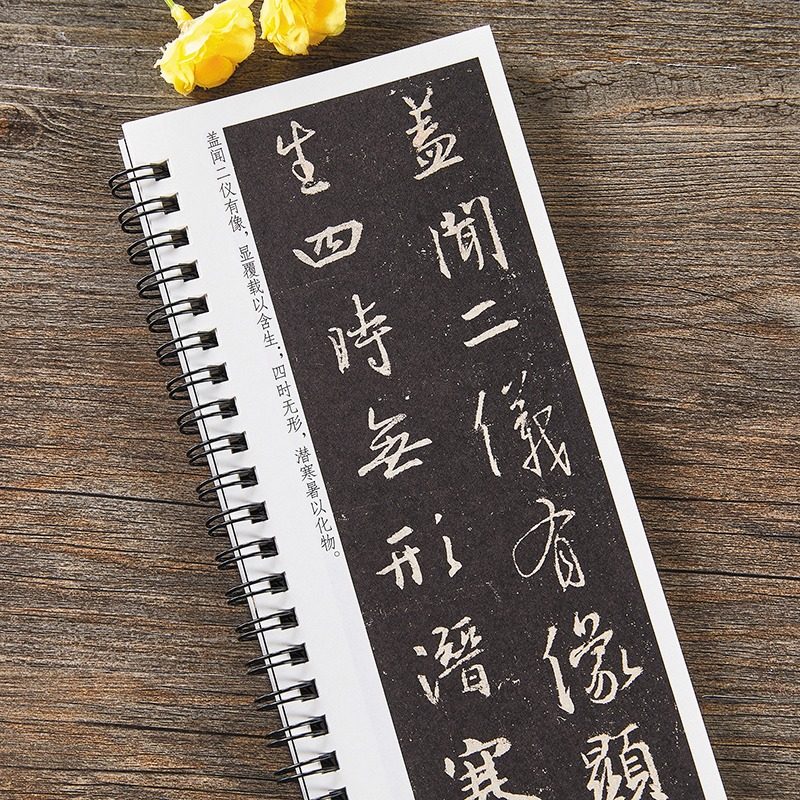 蓋聞二儀有像顯
生四時無形潛寒
盖闻二仪有像，显覆载以含生；四时无形，潜寒暑以化物。